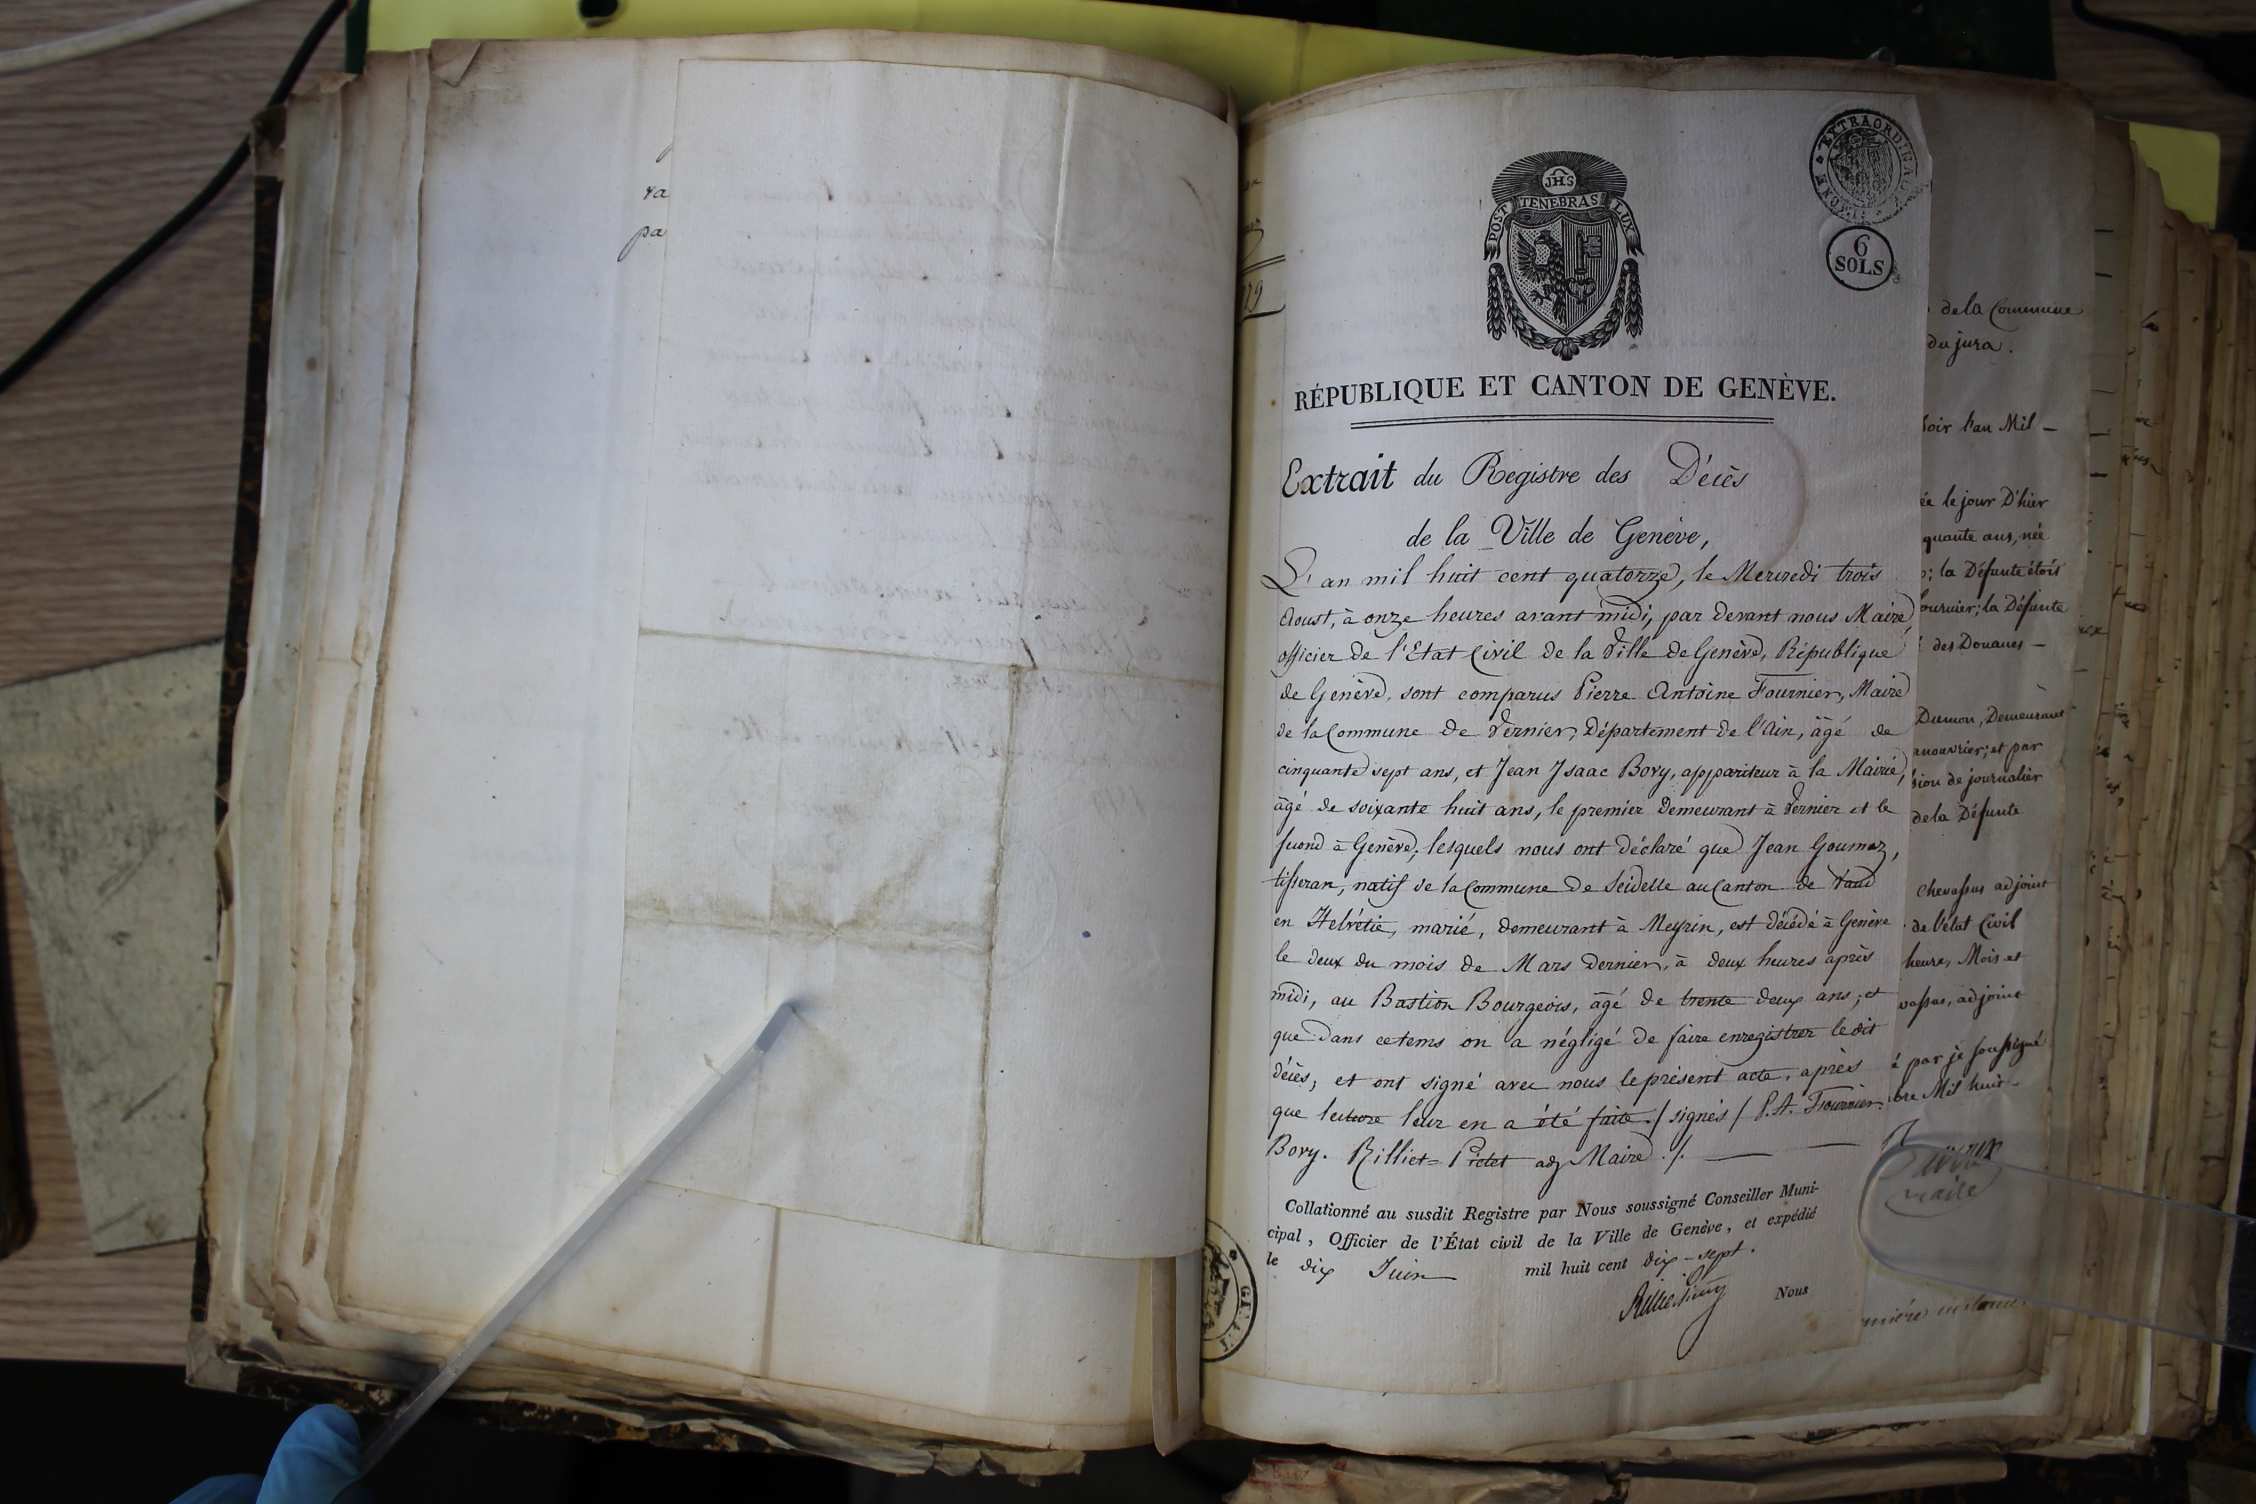 va
pa
JHS
POST TENEBRAS LUX
EXTRAORDINAIRE
6
SOLS
RÉPUBLIQUE ET CANTON DE GENÈVE.
Extrait du Registre des Décès
de la Ville de Genève,
L'an mil huit cent quatorze, le Mercredi trois
Aoust, à onze heures avant midi, par devant nous Maire,
officier de l'Etat Civil de la Ville de Genève, République
de Genève, sont comparus Pierre Antoine Fournier, Maire
de la Commune de Vernier, Département de l'Ain, âgé de
cinquante sept ans, et Jean Isaac Bory, appariteur à la Mairie,
âgé de soixante huit ans, le premier demeurant à Vernier et le
second à Genève; lesquels nous ont déclaré que Jean Goumaz,
tisseran, natif de la Commune de Seidelle au Canton de Vaud
en Helvétie, marié, demeurant à Meyrin, est décédé à Genève
le deux du mois de Mars dernier, à deux heures après
midi, au Bastion Bourgeois, âgé de trente deux ans; et
que dans ce tems on a négligé de faire enregistrer le dit
décès, et ont signé avec nous le présent acte, après
que lecture leur en a été faite. / signés / P. A. Fournier.
Bory. Rilliet=Pictet adj Maire ./.
Collationné au susdit Registre par Nous soussigné Conseiller Muni-
cipal, Officier de l'État civil de la Ville de Genève, et expédié
le dix Juin mil huit cent dix-sept.
Nous
de la Commune
du jura.
soir l'an Mil
le jour D'hier
quante ans, née
la Défunte étoit
fournier; la Défunte
des Douanes
Dumon, Demeurant
anouvrier; et par
sion de journalier
de la Défunte
Chevassus adjoint
de l'état Civil
heure, Mois et
vassus, adjoint
par je soussigné
bre Mil huit
maire